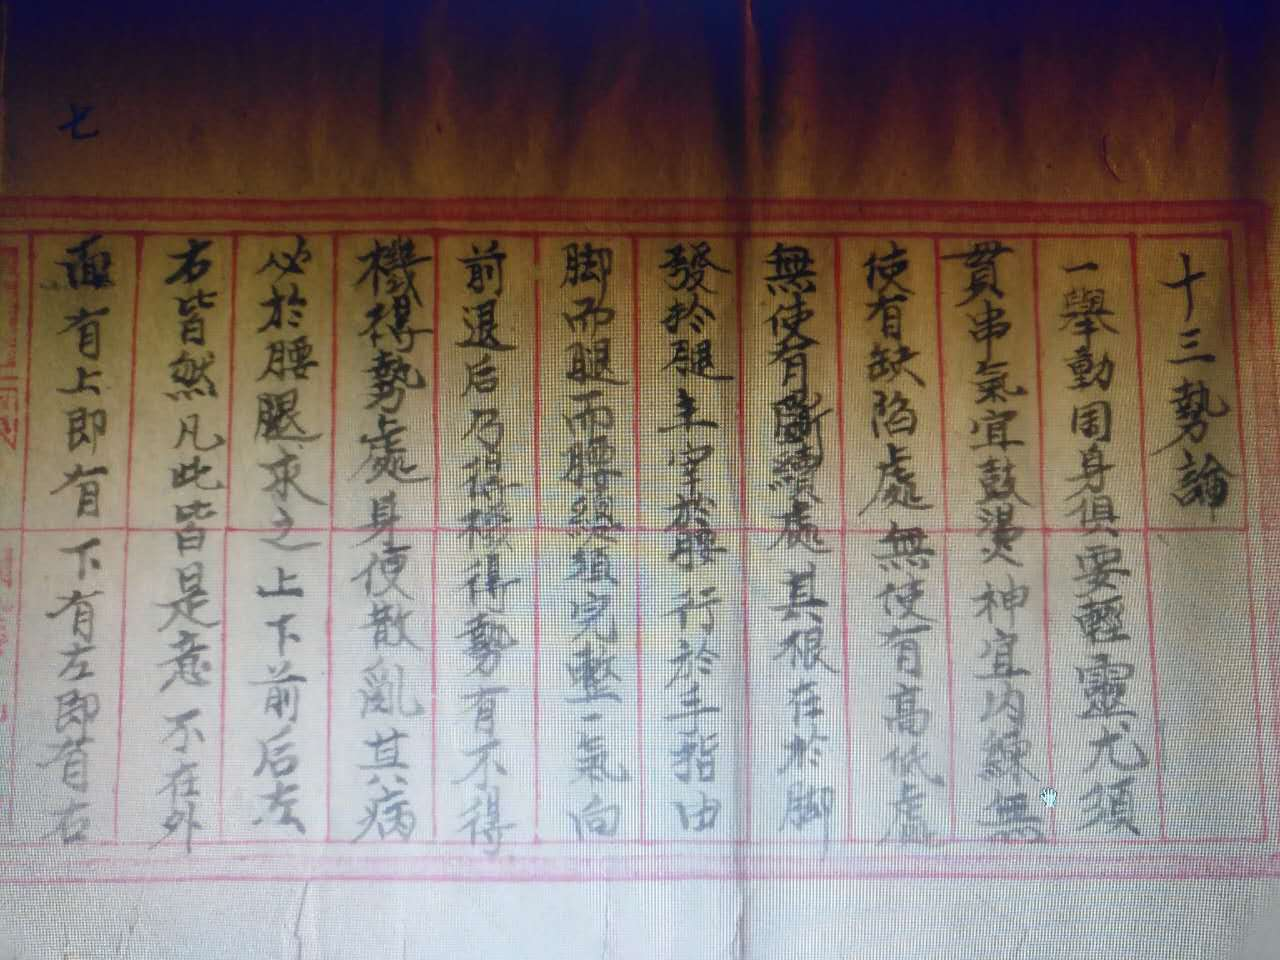 十三勢論
一舉動周身俱要輕靈尤須
貫串氣宜鼓燙神宜内練無
使有缺陷處無使有高低處
無使有斷續處其根在於脚
發於腿主宰於腰行於手指由
脚而腿而腰總須完整一氣向
前退后乃得機得勢有不得
機得勢處身便散亂其病
必於腰腿求之上下前后左
右皆然凡此皆是意不在外
面有上即有下有左即有右
七